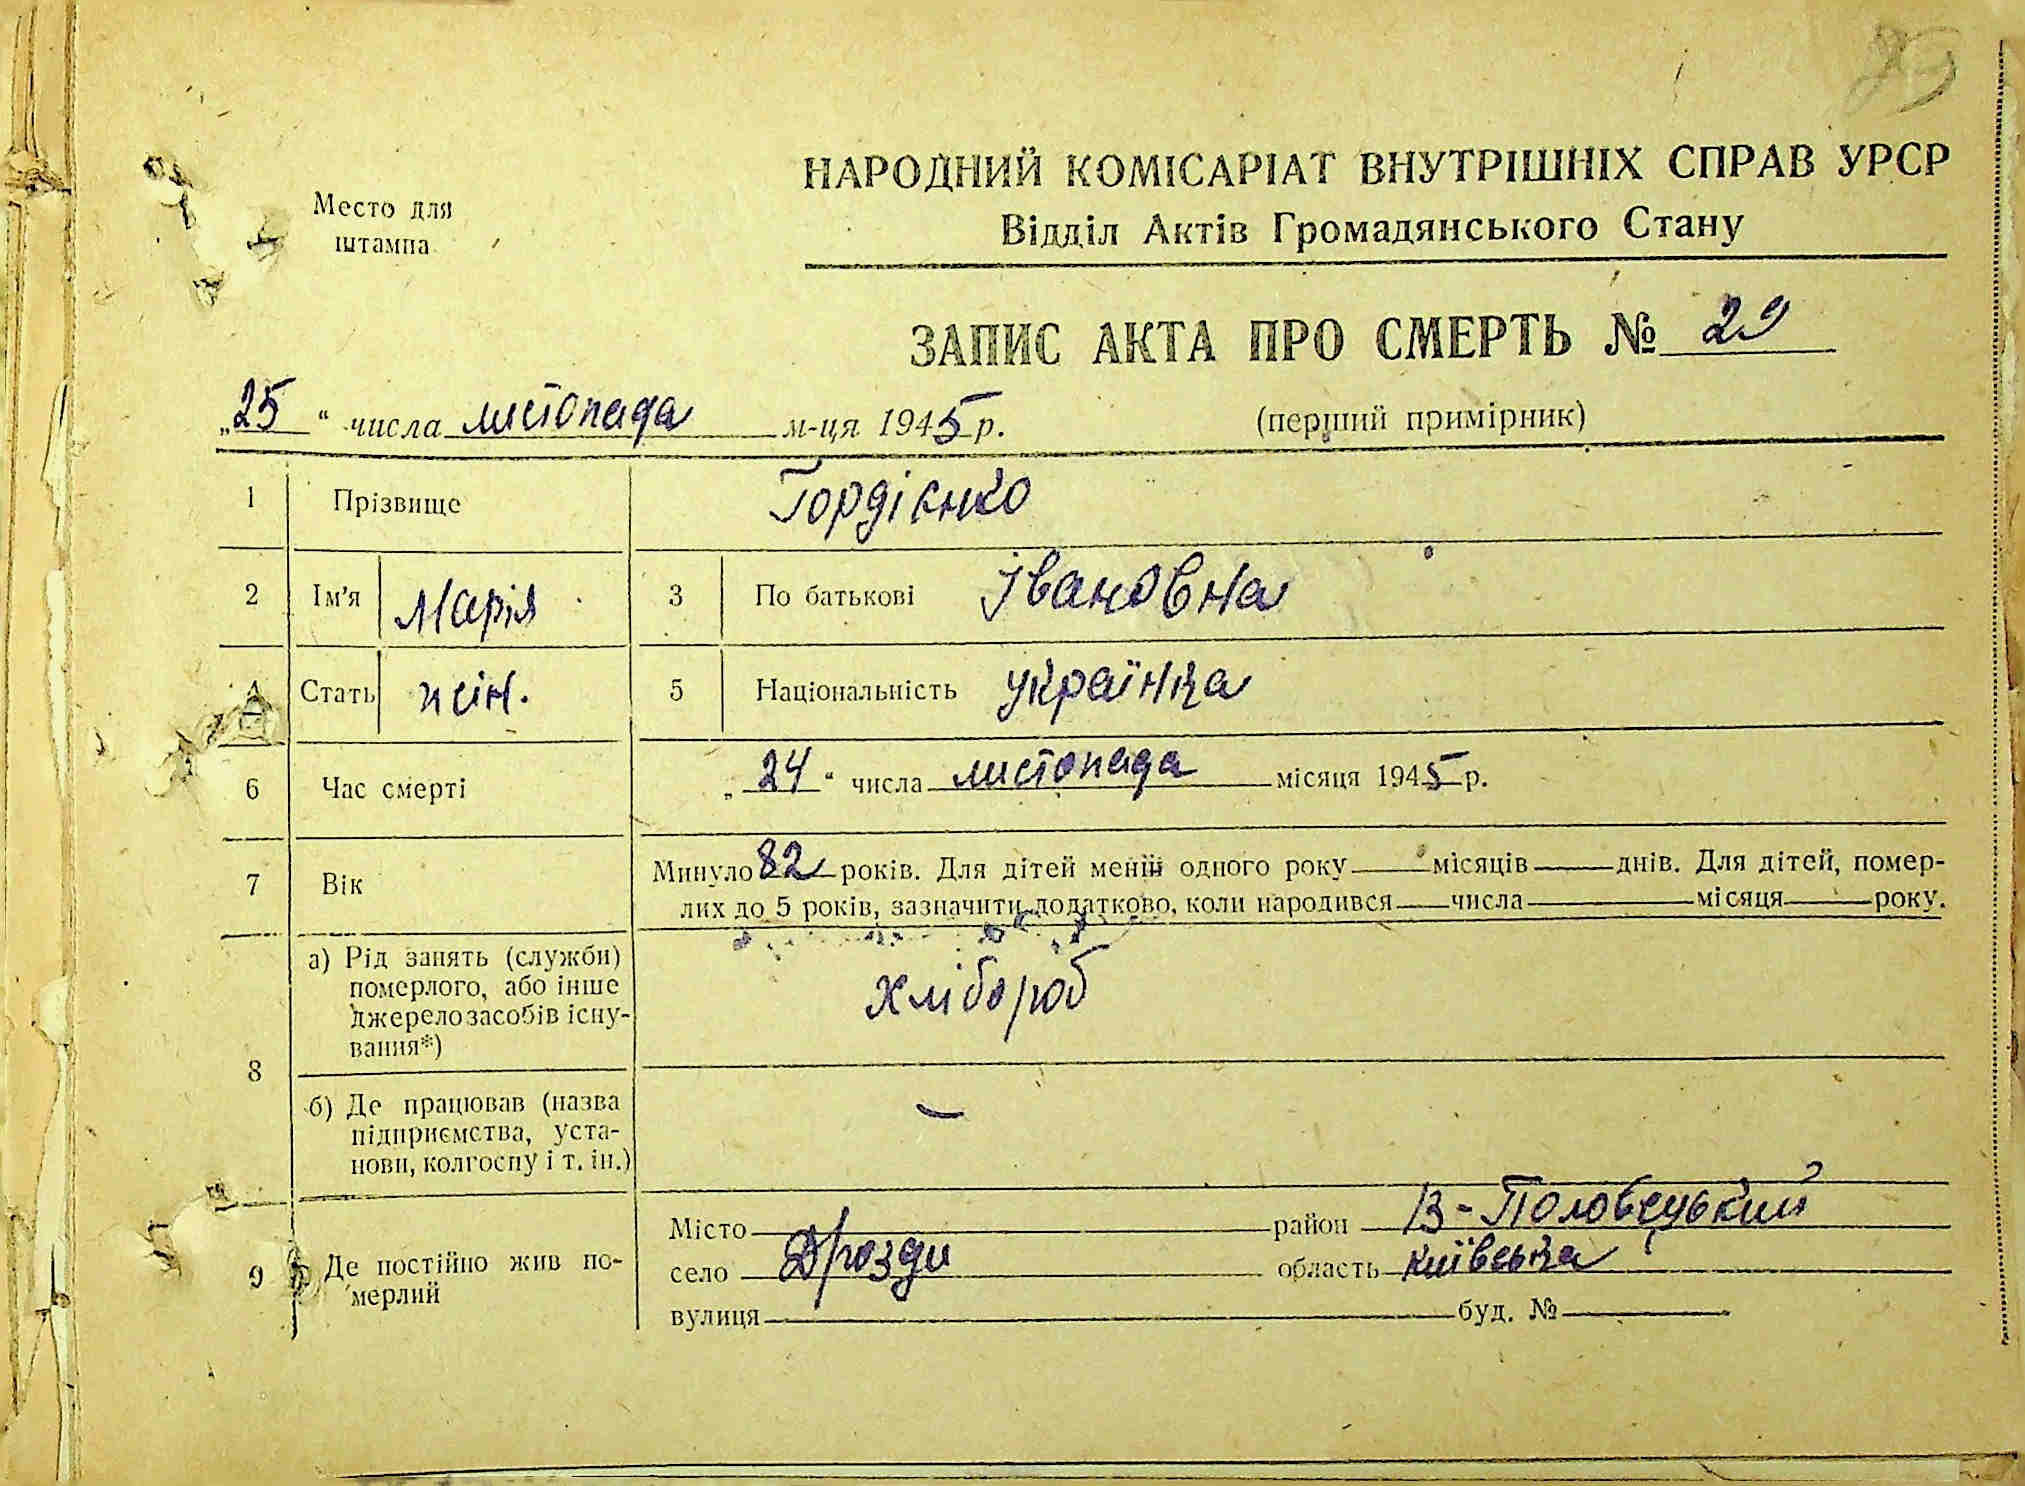 29
НАРОДНИЙ КОМІСАРІАТ ВНУТРІШНІХ СПРАВ УРСР
Відділ Актів Громадянського Стану
Место для
штампа
ЗАПИС АКТА ПРО СМЕРТЬ № 29
„25“ числа листопада м-ця 1945 р. (перший примірник)
1 Прізвище Гордієнко
2 Ім’я Марія 3 По батькові Івановна
4 Стать жін. 5 Національність українка
6 Час смерті „24“ числа листопада місяця 1945 р.
7 Вік Минуло 82 років. Для дітей менш одного року — місяців — днів. Для дітей, помер-
лих до 5 років, зазначити додатково, коли народився — числа — місяця — року.
8 а) Рід занять (служби)
померлого, або інше
джерело засобів існу-
вання*)
хлібороб
б) Де працював (назва
підприємства, уста-
нови, колгоспу і т. ін.)
—
9 Де постійно жив по-
мерлий
Місто район В-Половецький
село Дрозди область київська
вулиця буд. №